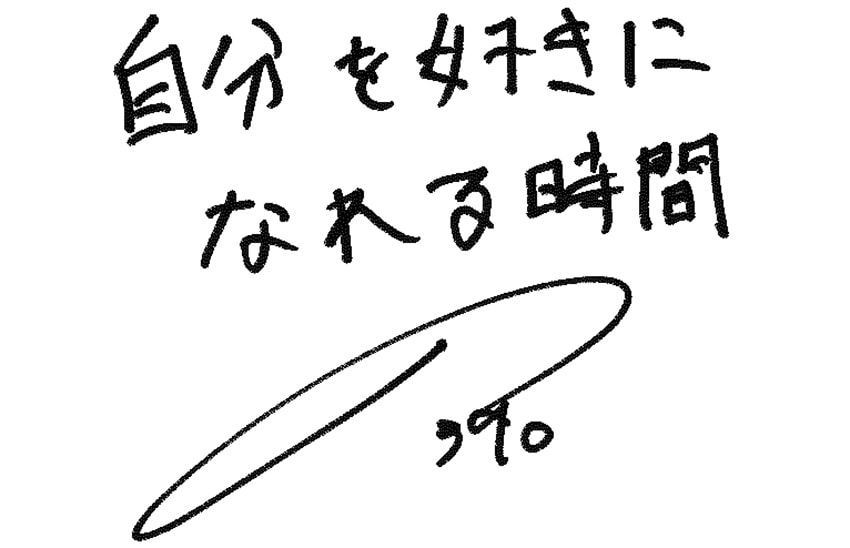 自分を好きに
なれる時間